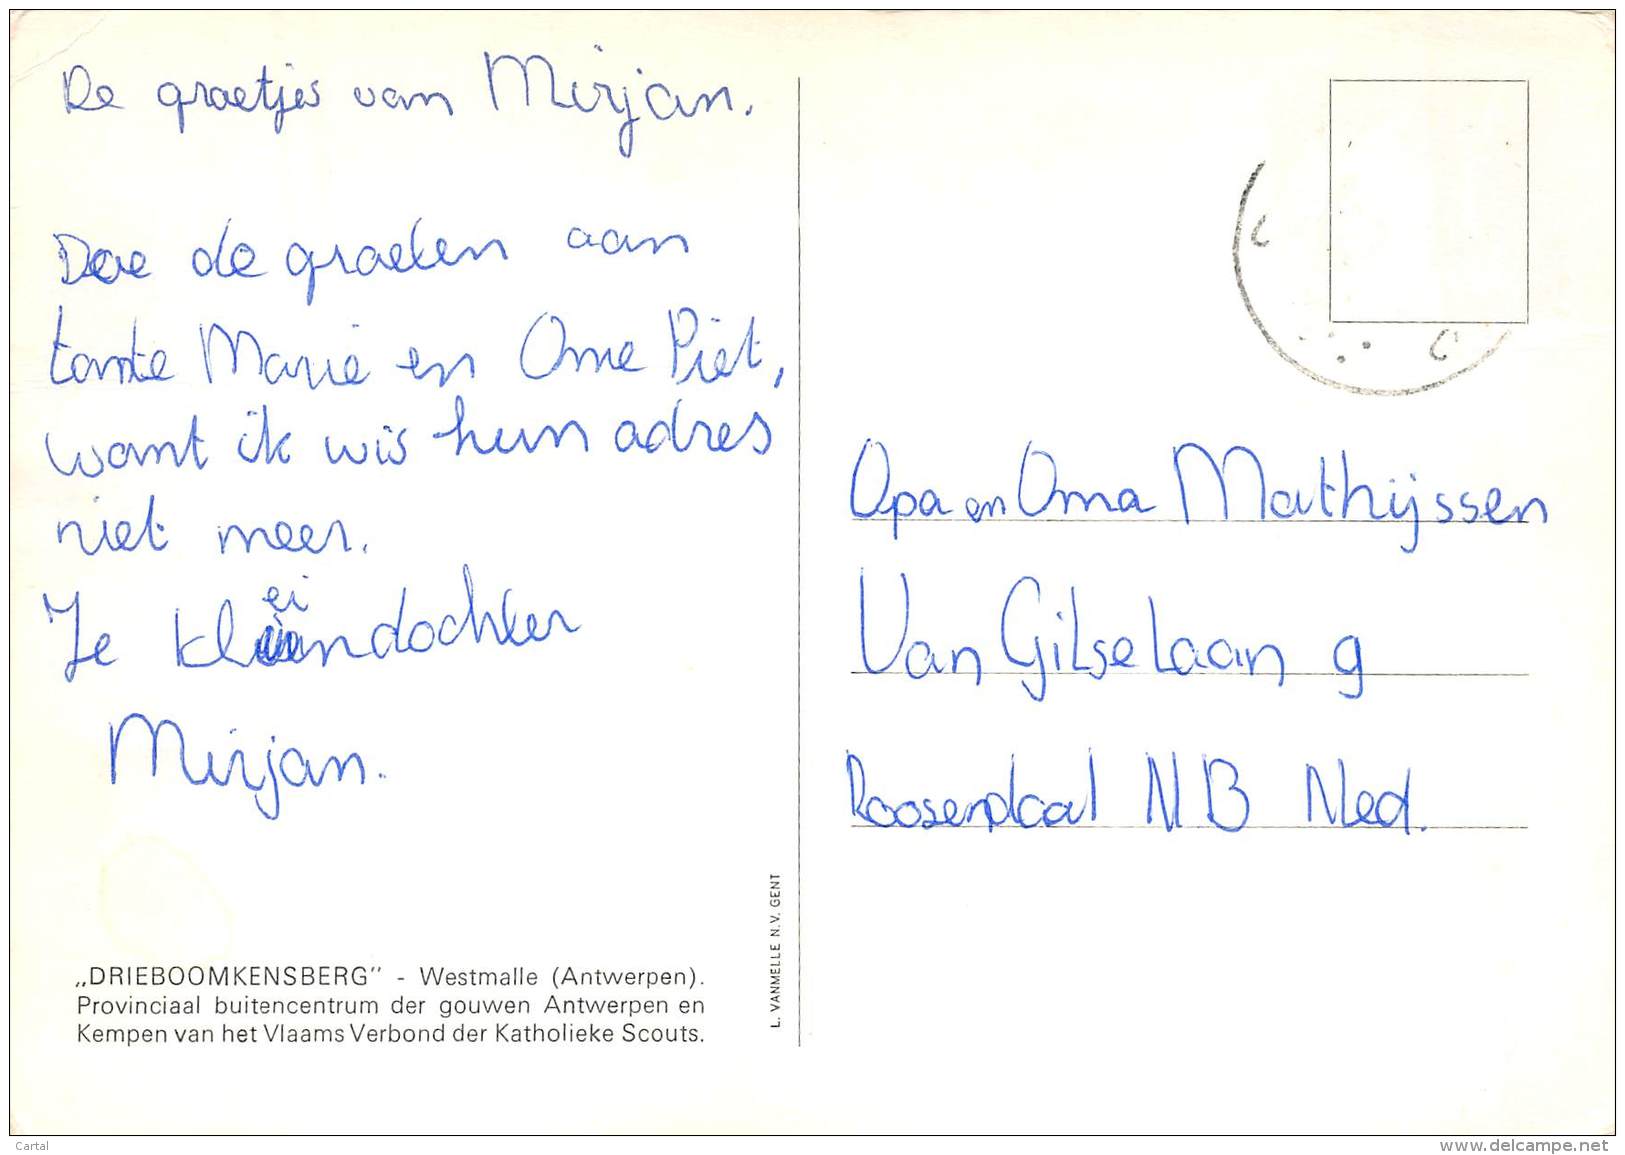 De groetjes van Mirjan.
Doe de groeten aan
tante Marie en Ome Piet,
want ik wis hun adres
niet meer.
Je kleindochter
Mirjan.
Opa en Oma Mathijssen
Van Gilselaan 9
Roosendaal N B Ned.
„DRIEBOOMKENSBERG" - Westmalle (Antwerpen).
Provinciaal buitencentrum der gouwen Antwerpen en
Kempen van het Vlaams Verbond der Katholieke Scouts.
L. VANMELLE N.V. GENT
Cartal
www.delcampe.net